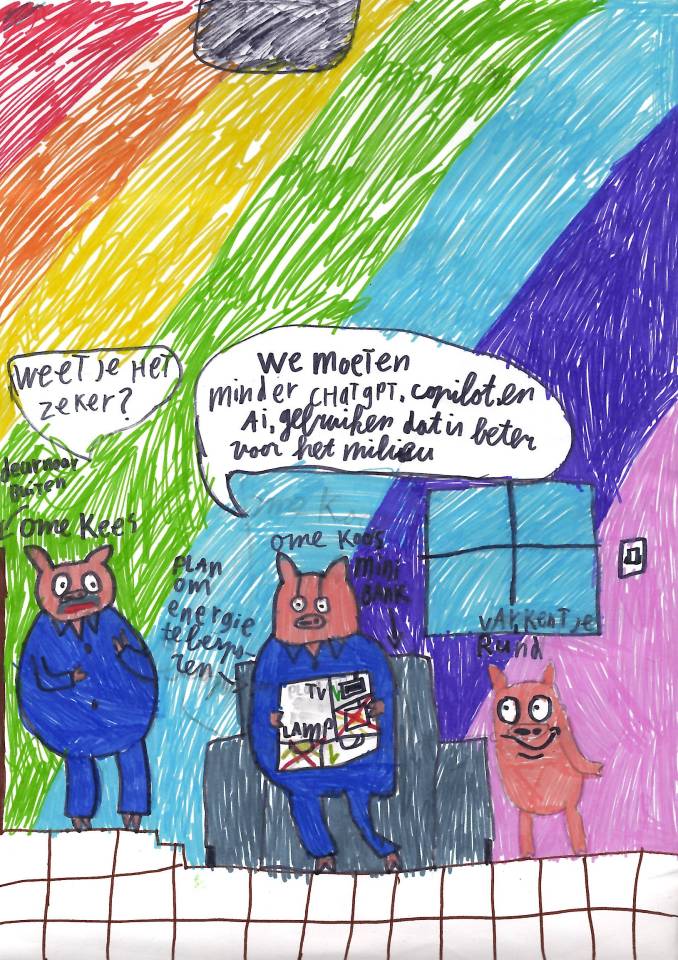 Weet je Het
zeker?
We moeten
minder CHatgPT, copilot, en
Ai, gebruiken dat is beter
voor het milieu
deur naar
Buiten
ome Kees
ome k
ome Koos
PLAN
om
energie
te bespa-
ren
mini
BANK
varkentje
Rund
TV
LAMP